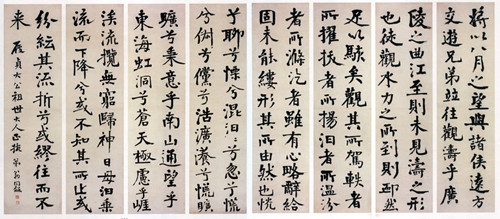 將以八月之望與諸侯遠方
交遊兄弟並往觀濤乎廣
陵之曲江至則未見濤之形
也徒觀水力之所到則卹然
足以駭矣觀其所駕軼者
所擢拔者所揚汩者所溫汾
者所滌汔者雖有心略辭給
固未能縷形其所由然也怳
兮聊兮慄兮混汩兮忽兮慌
兮俶兮儻兮浩瀇瀁兮慌曠
曠兮乘意乎南山通望乎
東海虹洞兮蒼天極慮乎崖
涘流攬無窮歸神日母汩乘
流而下降兮或不知其所止或
紛紜其流折兮忽繆往而不
來 貞大公祖世大人正 弟翁同龢